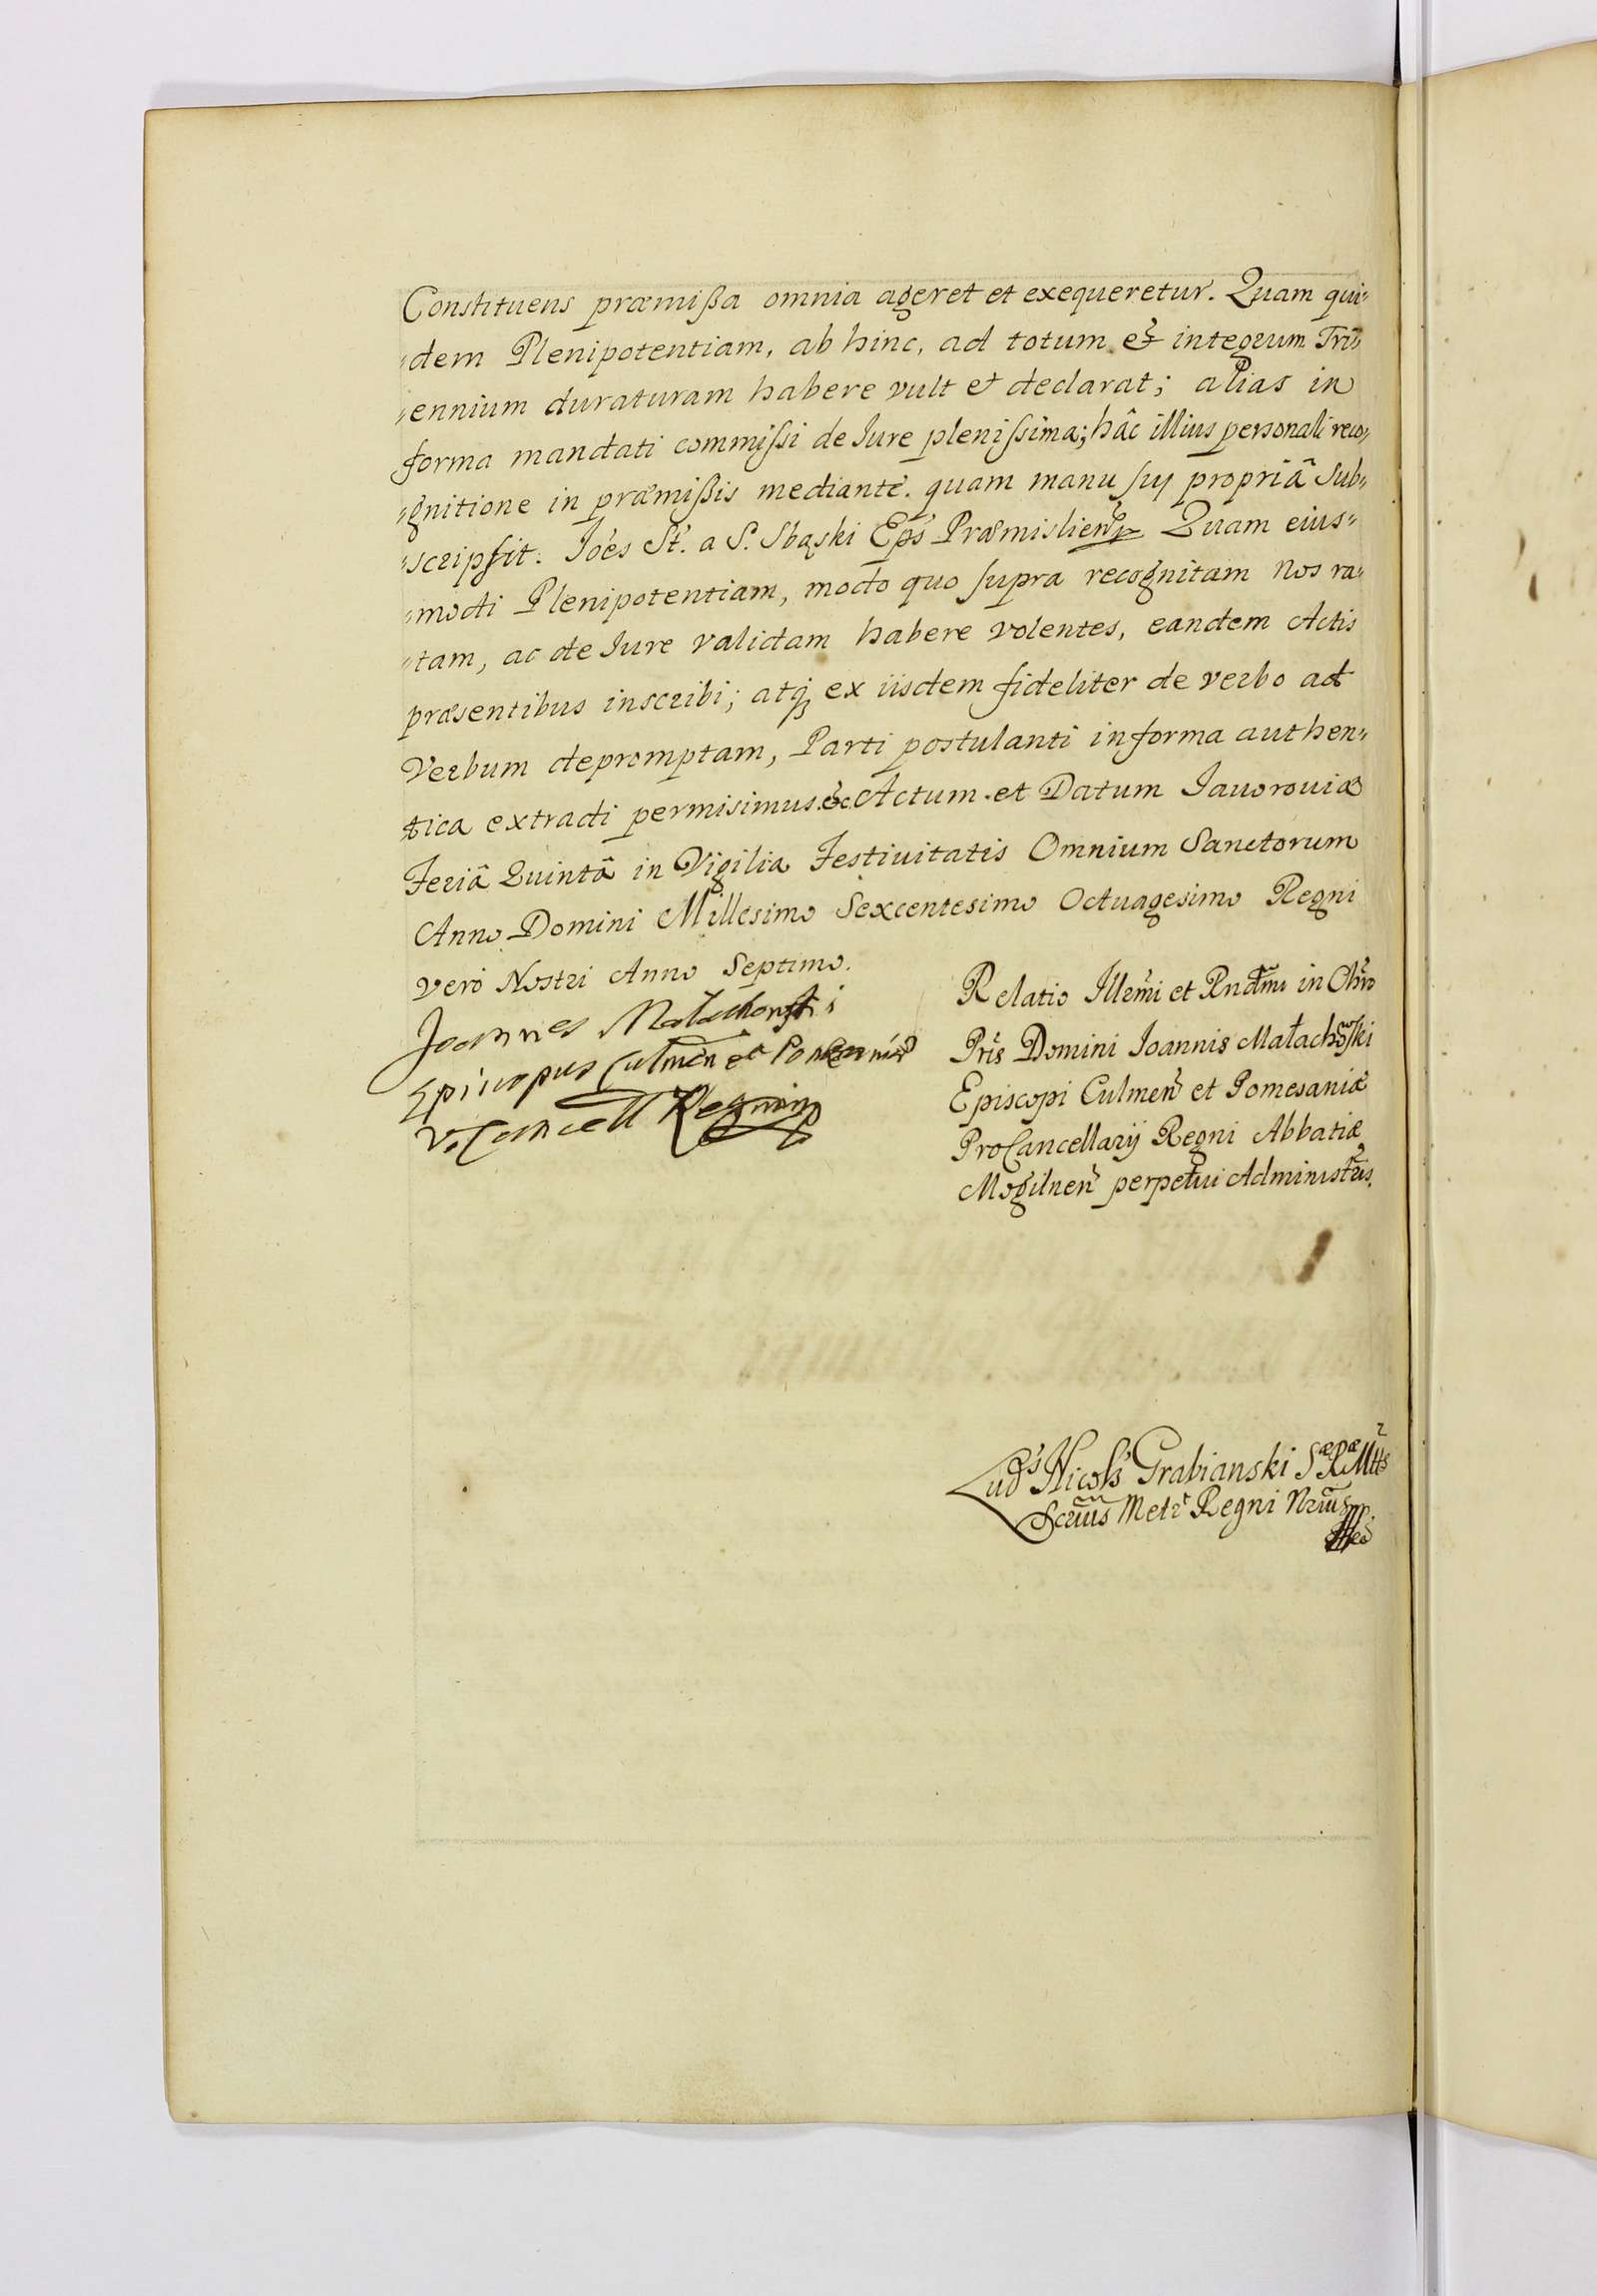 Constituens præmißa omnia ageret et exequeretur. Quam qui„
„dem Plenipotentiam, ab hinc, ad totum et integrum Tri„
„ennium duraturam habere vult et declarat; alias in
forma mandati commissi de Jure plenissima; hâc illius personali reco„
„gnitione in præmißis mediante. quam manu suj propriâ Sub„
„scripsit. Joẽs St. a S. Sbąski Epś Præmislieñ Quam eius„
„modi Plenipotentiam, modo quo supra recognitam Nos ra„
„tam, ac de Jure validam habere volentes, eandem Actis
præsentibus inscribi; atq̨ ex iisdem fideliter de verbo ad
Verbum depromptam, Parti postulanti in forma authen„
tica extradi permisimus. &c Actum et Datum Javoroviæ
Feriâ Quintâ in Vigilia Festivitatis Omnium Sanctorum
Anno Domini Millesimo Sexcentesimo Octuagesimo Regni
vero Nostri Anno Septimo.
Joannes Małachowski
Episcopus Culmen et Pomesaniæ
V. Cancell Regni
Relatio Illẽmi et Rndmi in Chro
Pris Domini Joannis Małachowski
Episcopi Culmeñ et Pomesaniæ
ProCancellarij Regni Abbatiæ
Mogilneñ perpetui Administris.
Luds Nicols Grabianski Sæ Ræ Mttis
Scrius Metr Regni Nrius